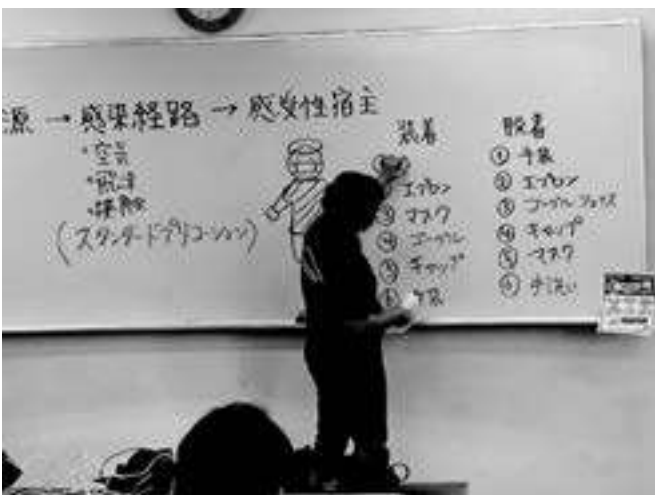 源 → 感染経路 → 感受性宿主
・空気
・飛沫
・接触
(スタンダードプリコーション)
装着
エプロン
③ マスク
④ ゴーグル
⑤ キャップ
⑥ 手袋
脱着
① 手袋
② エプロン
③ ゴーグル
④ キャップ
⑤ マスク
⑥ 手洗い